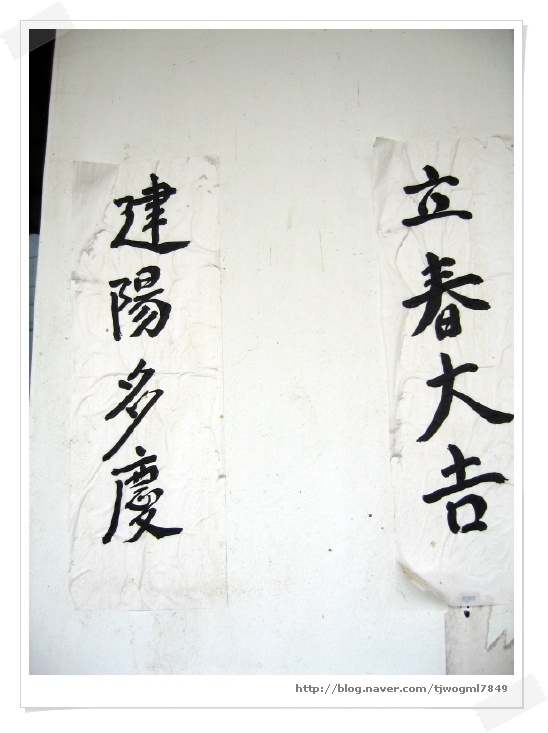 立春大吉
建陽多慶
http://blog.naver.com/tjwogml7849